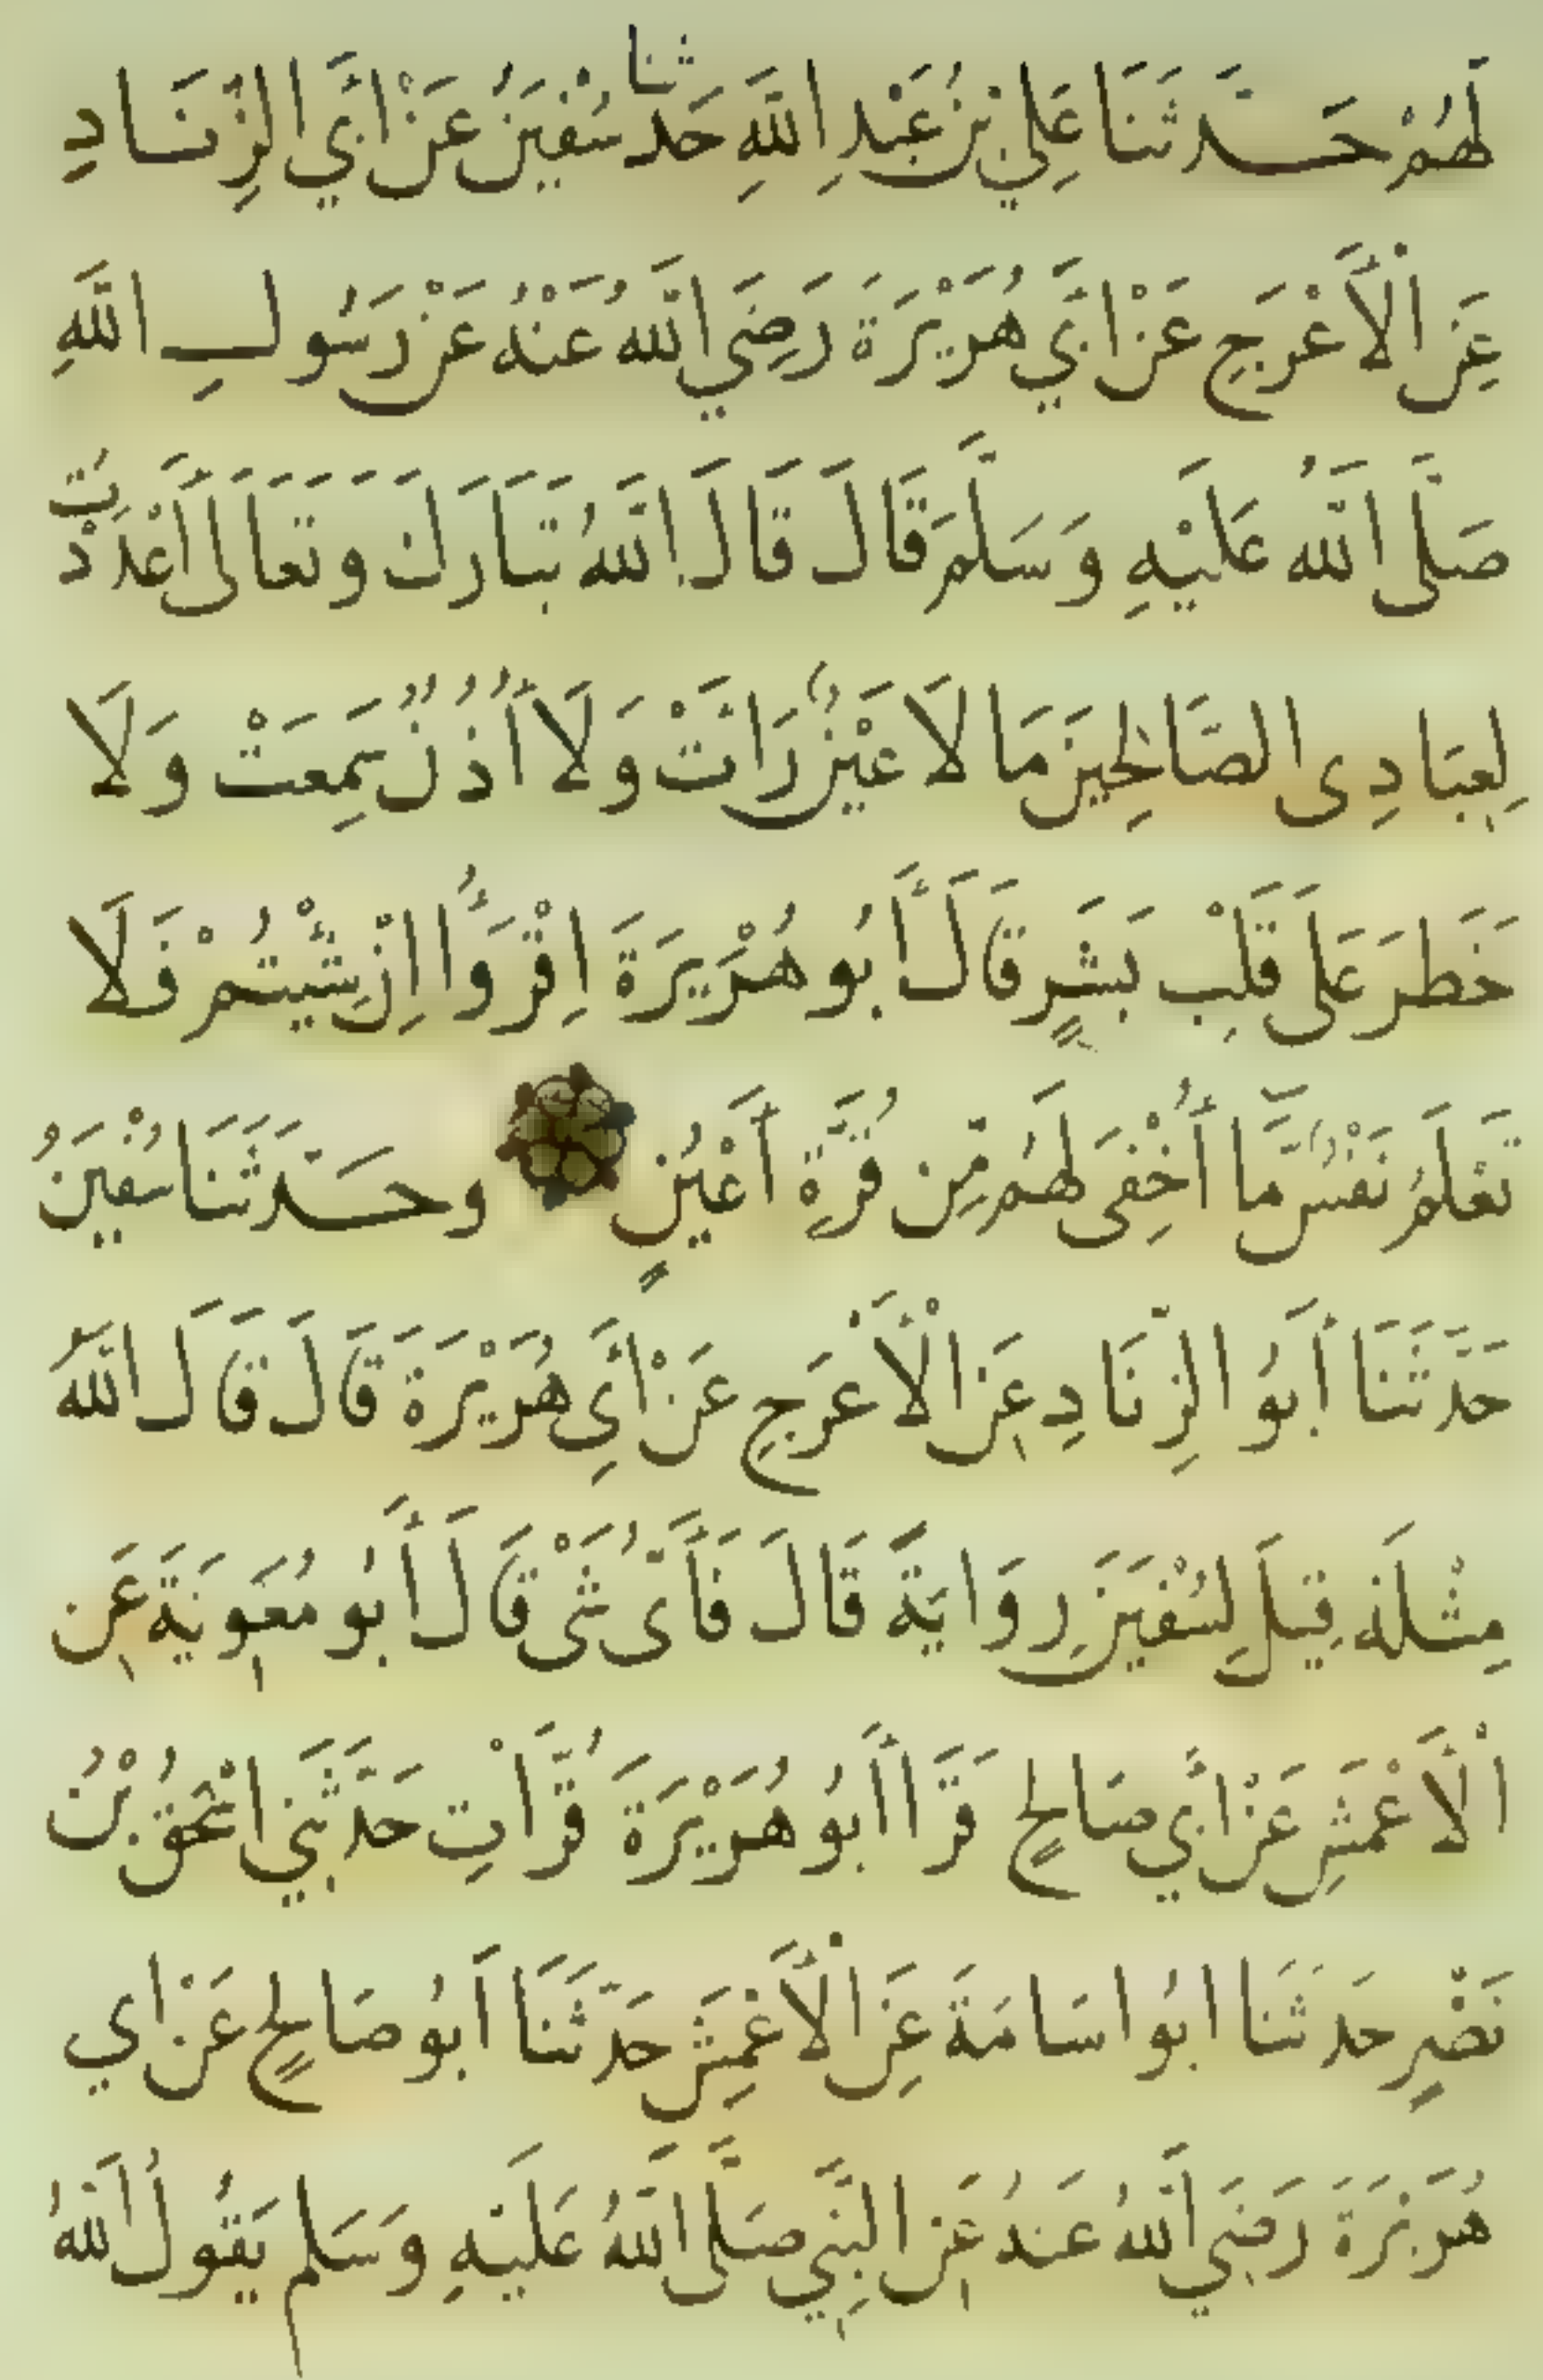 لَهُمْ حَدَّثَنَا عَلِيُّ بْنُ عَبْدِ اللَّهِ حَدثنا سُفْيَنُ عَنْ أَبِي الزِّنَادِ
عَنِ الْأَعْرَجِ عَنْ أَبِي هُرَيْرَةَ رَضِيَ اللَّهُ عَنْهُ عَنْ رَسُولِ اللَّهِ
صَلَّى اللَّهُ عَلَيْهِ وَسَلَّمَ قَالَ قَالَ اللَّهُ تَبَارَكَ وَتَعَالَى أَعْدَدْتُ
لِعِبَادِى الصَّالِحِينَ مَا لَا عَيْنٌ رَأَتْ وَلَا أُذُنٌ سَمِعَتْ وَلَا
خَطَرَ عَلَى قَلْبِ بَشَرٍ قَالَ أَبُو هُرَيْرَةَ اِقْرَؤُا إِنْ شِئْتُمْ فَلَا
تَعْلَمُ نَفْسٌ مَّا أُخْفِىَ لَهُم مِّن قُرَّةِ أَعْيُنٍ وحَدَّثَنَا سُفْيَنُ
حَدَّثَنَا أَبُو الزِّنَادِ عَنِ الْأَعْرَجِ عَنْ أَبِي هُرَيْرَةَ قَالَ قَالَ اللَّهُ
مِثْلَهُ قِيلَ لِسُفْيَنَ رِوَايَةً قَالَ فَأَىُّ شَىْ قَالَ أَبُو مُعَوِيَةَ عَنِ
الْأَعْمَشِ عَنْ أَبِي صَالِحٍ قَرَأَ أَبُو هُرَيْرَةَ قُرَّاتِ حَدَّثَنِي اسْحَقُ بْنُ
نَصْرٍ حَدثَنَا ابُو اسَامَةَ عَنِ الْأَعْمَشِ حَدَّثَنَا أَبُو صَالِحٍ عَنْ ابي
هُرَيْرَةَ رَضِيَ اللَّهُ عَنهُ عَنِ النَّبِيِّ صَلَّى اللَّهُ عَلَيْهِ وَسَلم يَقُولُ اللَّهُ